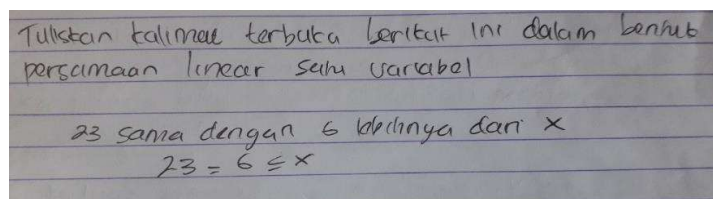 Tuliskan kalimat terbuka berikut ini dalam bentuk
persamaan linear satu variabel
23 sama dengan 6 lebihnya dari x
23 = 6 ≤ x